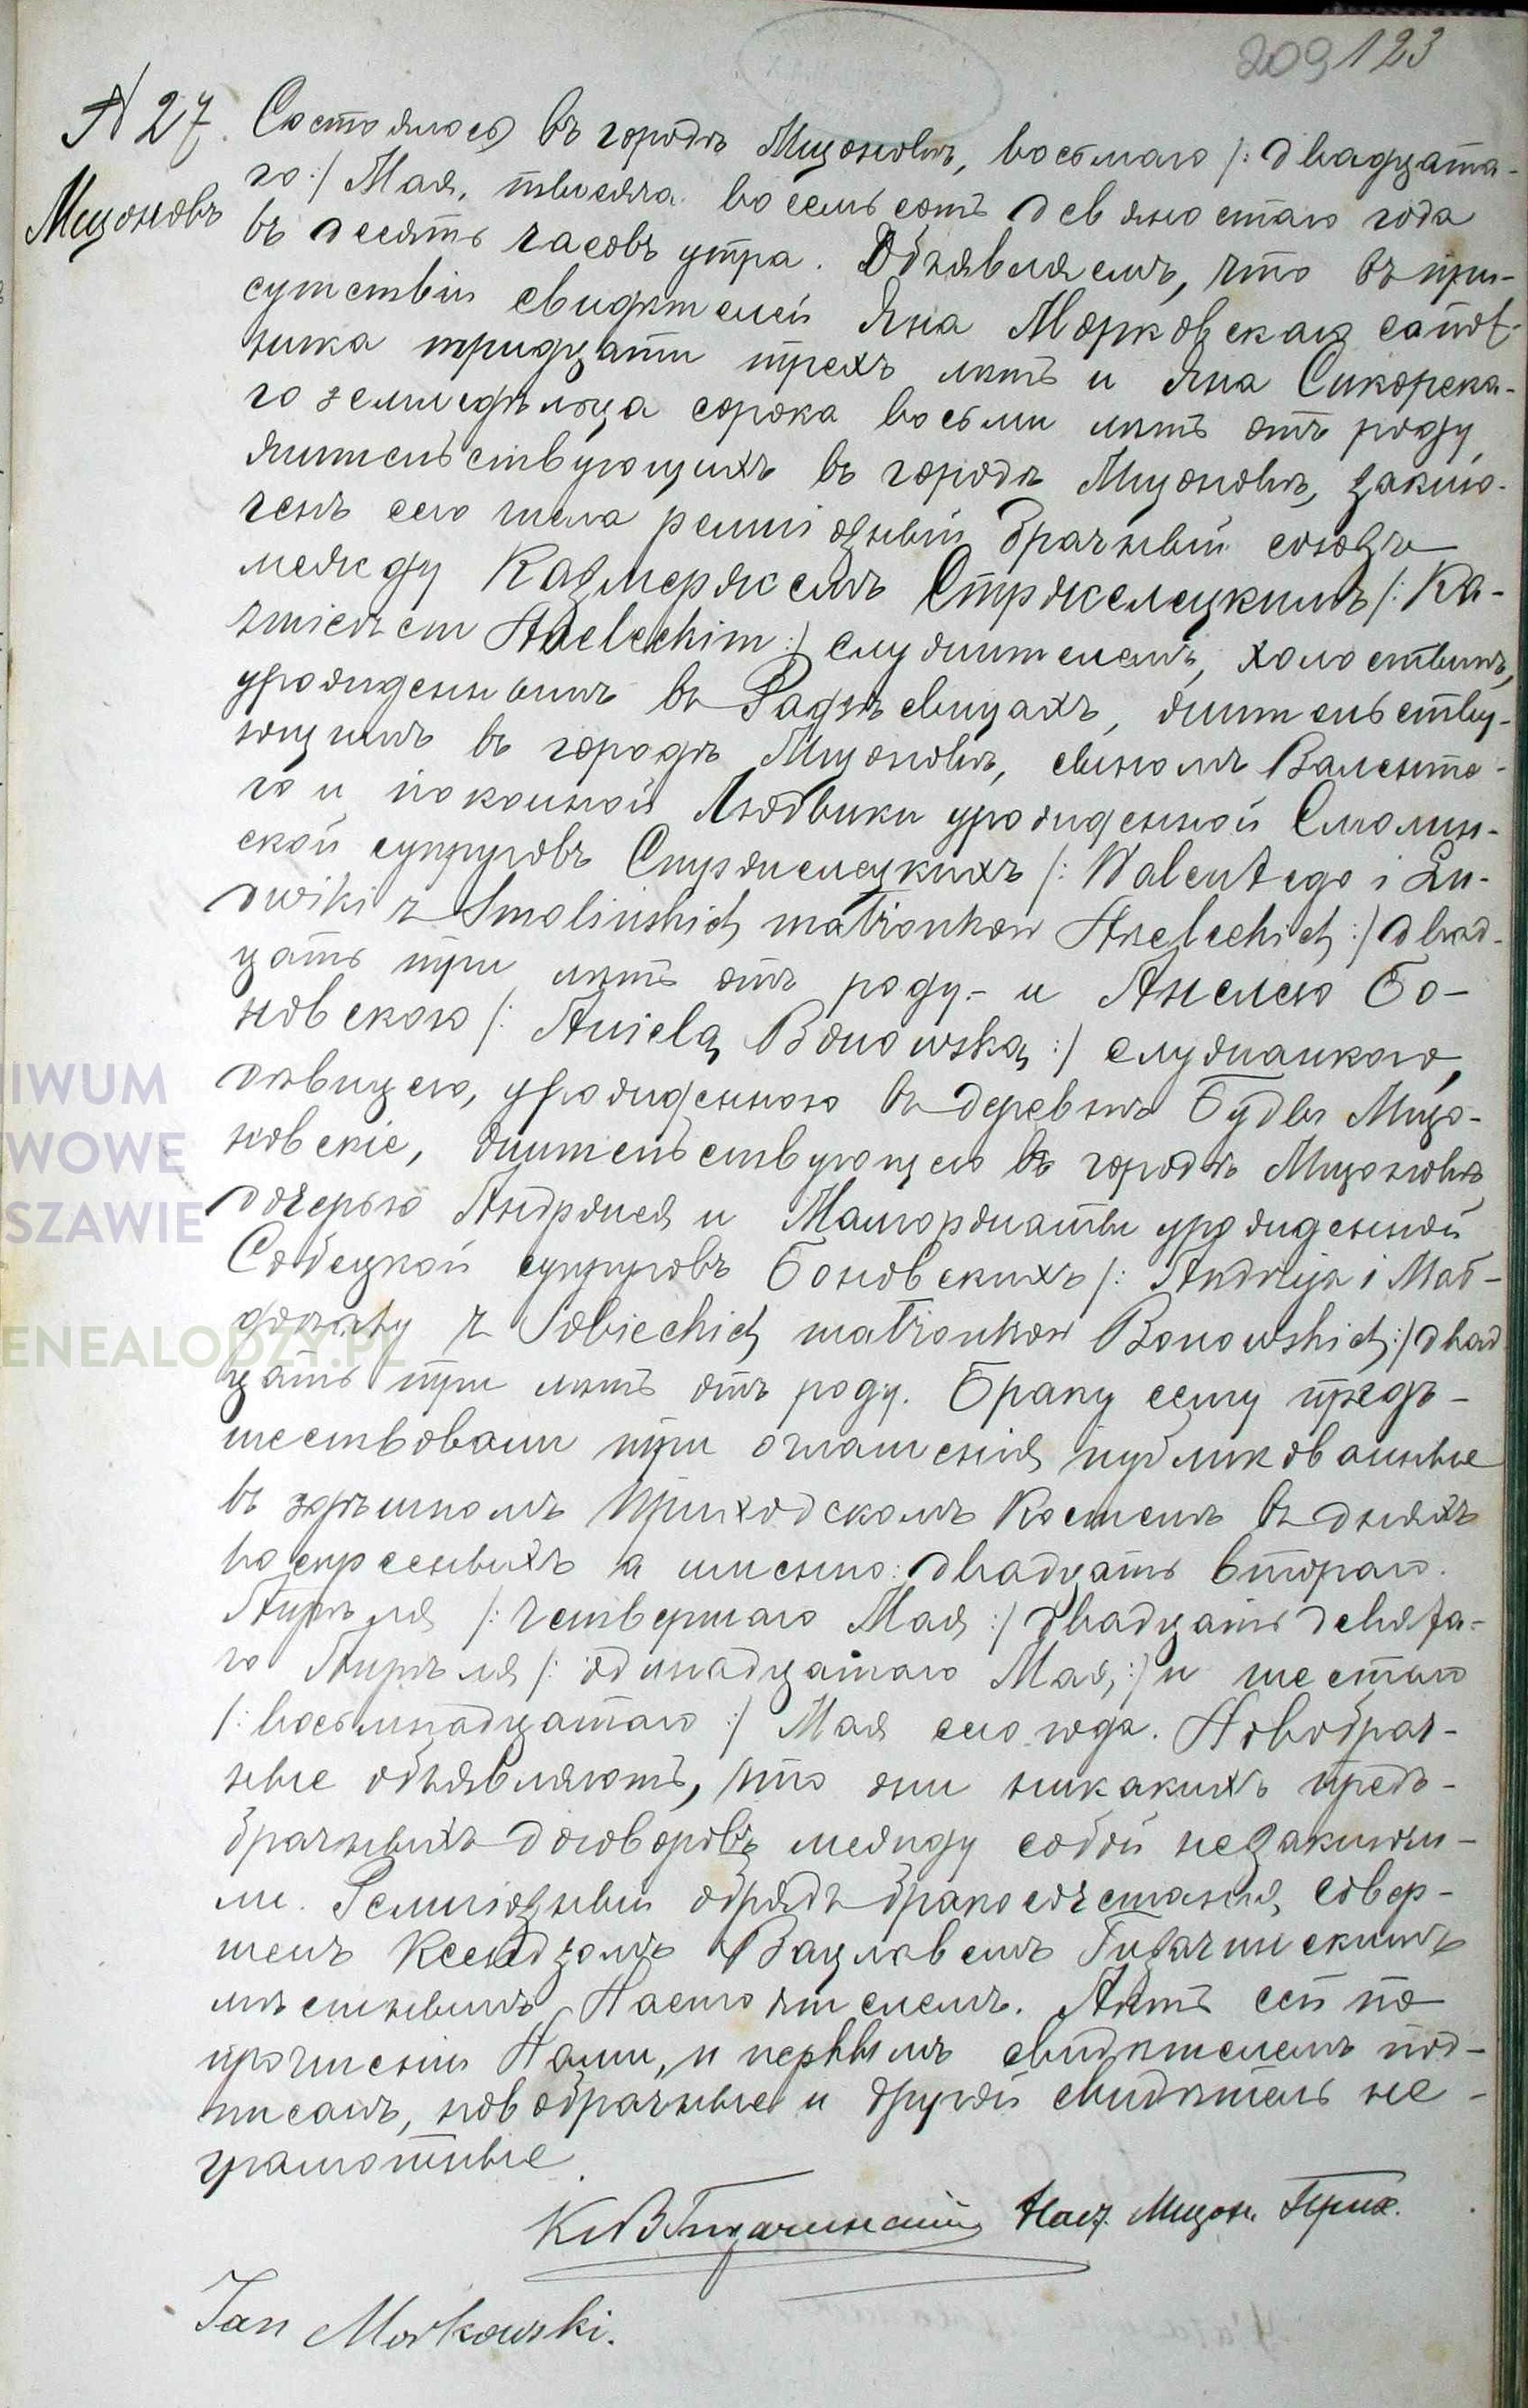 209 123
N 27.
Мщоновъ
Состоялось въ городѣ Мщоновѣ, восьмаго /: двадцата-
го :/ Мая, тысяча восемьсотъ девяностаго года
въ десять часовъ утра. Объявляемъ, что въ при-
сутствіи свидѣтелей Яна Морковскаго сапож-
ника тридцати трехъ лѣтъ и Яна Сикорска-
го земледѣльца сорока восьми лѣтъ отъ роду,
жительствующихъ въ городѣ Мщоновѣ, заклю-
ченъ сего числа религіозный брачный союзъ
между Казмержемъ Стржелецкимъ /: Ka-
zmierzem Strzeleckim :/ служителемъ, холостымъ,
урожденнымъ въ Радзѣевицахъ, жительству-
ющимъ въ городѣ Мщоновѣ, сыномъ Валенте-
го и покойной Людвики урожденной Смолин-
ской супруговъ Стржелецкихъ /: Walentego i Lu-
dwiki z Smolinskich małżonków Strzeleckich :/ двад-
цать три лѣтъ отъ роду.- и Анелею Бо-
новскою /: Anielą Bonowską :/ служанкою,
дѣвицею, урожденною въ деревнѣ Буды Мщо-
новскіе, жительствующею въ городѣ Мщоновѣ
дочерью Андржея и Малгоржаты урожденной
Собецкой супруговъ Боновскихъ /: Andrzeja i Mał-
gorzaty z Sobieckich małżonków Bonowskich :/ двад
цать три лѣтъ отъ роду. Браку сему предъ-
шествовали три оглашенія публикованные
въ здѣшномъ Приходскомъ Костелѣ въ дняхъ
воскресныхъ а именно: двадцать втораго
Апрѣля /: четвертаго Мая :/ двадцать девята-
го Апрѣля /: одинадцатаго Мая :/ и шестаго
/: восьмнадцатаго :/ Мая сего года. Новобрач-
ные объявляютъ, что они никакихъ предъ-
брачныхъ договоровъ между собой незаключи-
ли. Религіозный обрядъ бракосочетанія совер-
шенъ Ксендзомъ Вацлавемъ
мѣстнымъ Настоятелемъ. Актъ сей по
прочтеніи Нами, и первымъ свидѣтелемъ под-
писанъ, новобрачные и другой свидѣтель не-
грамотные.
Наст. Мщон. Прих.
Jan Morkowski.
IWUM
WOWE
SZAWIE
ENEALODZY.PL